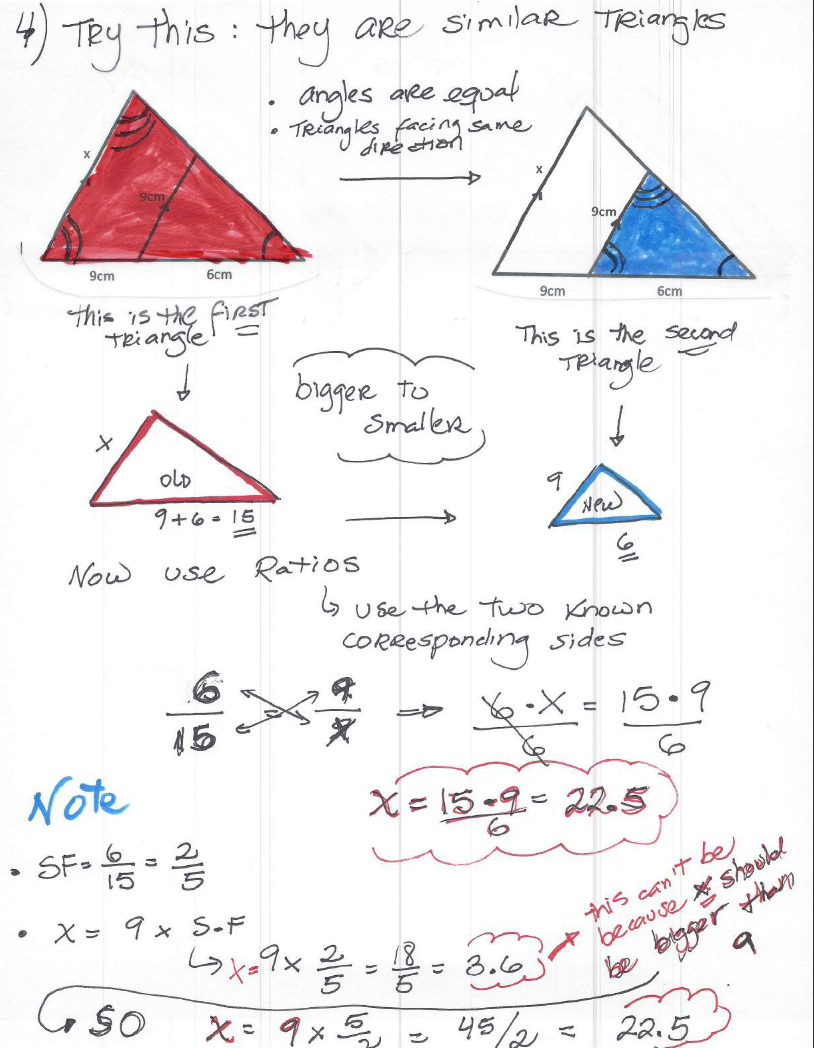 4) TRY this : they are similar Triangles
• angles are equal
• Triangles facing same
direction
x
9cm
9cm
6cm
x
9cm
9cm
6cm
this is the first
triangle
This is the second
Triangle
bigger to
smaller
x
OLD
9+6 = 15
9
New
6
Now use Ratios
↳ use the two known
corresponding sides
6/15 = 9/x ⇒ 6·x/6 = 15·9/6
x = 15·9/6 = 22.5
Note
• SF = 6/15 = 2/5
• x = 9 x S.F
↳ x = 9 x 2/5 = 18/5 = 3.6
this can't be
because x should
be bigger than
9
SO x = 9 x 5/2 = 45/2 = 22.5